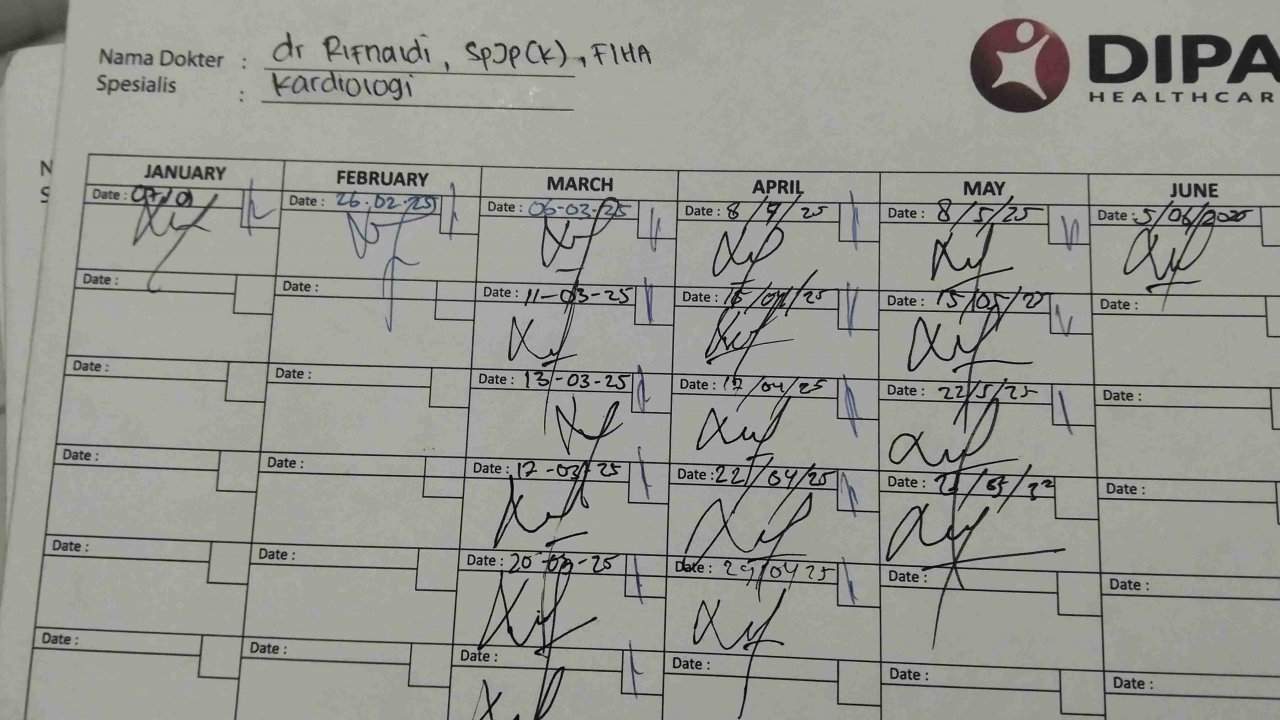 Nama Dokter : dr Rifnaldi, SpJP(K), FIHA
Spesialis : Kardiologi
DIPA
HEALTHCAR
JANUARY FEBRUARY MARCH APRIL MAY JUNE
Date : 07/01 Date : 26-02-25 Date : 06-03-25 Date : 8/4/25 Date : 8/5/25 Date : 5/06/2025
Date : Date : Date : 11-03-25 Date : 15/04/25 Date : 15/05/25 Date :
Date : Date : Date : 13-03-25 Date : 17/04/25 Date : 22/5/25 Date :
Date : Date : Date : 17-03-25 Date : 22/04/25 Date : Date :
Date : Date : Date : 20-03-25 Date : 29/04 25 Date : Date :
Date : Date : Date : Date : Date : Date :